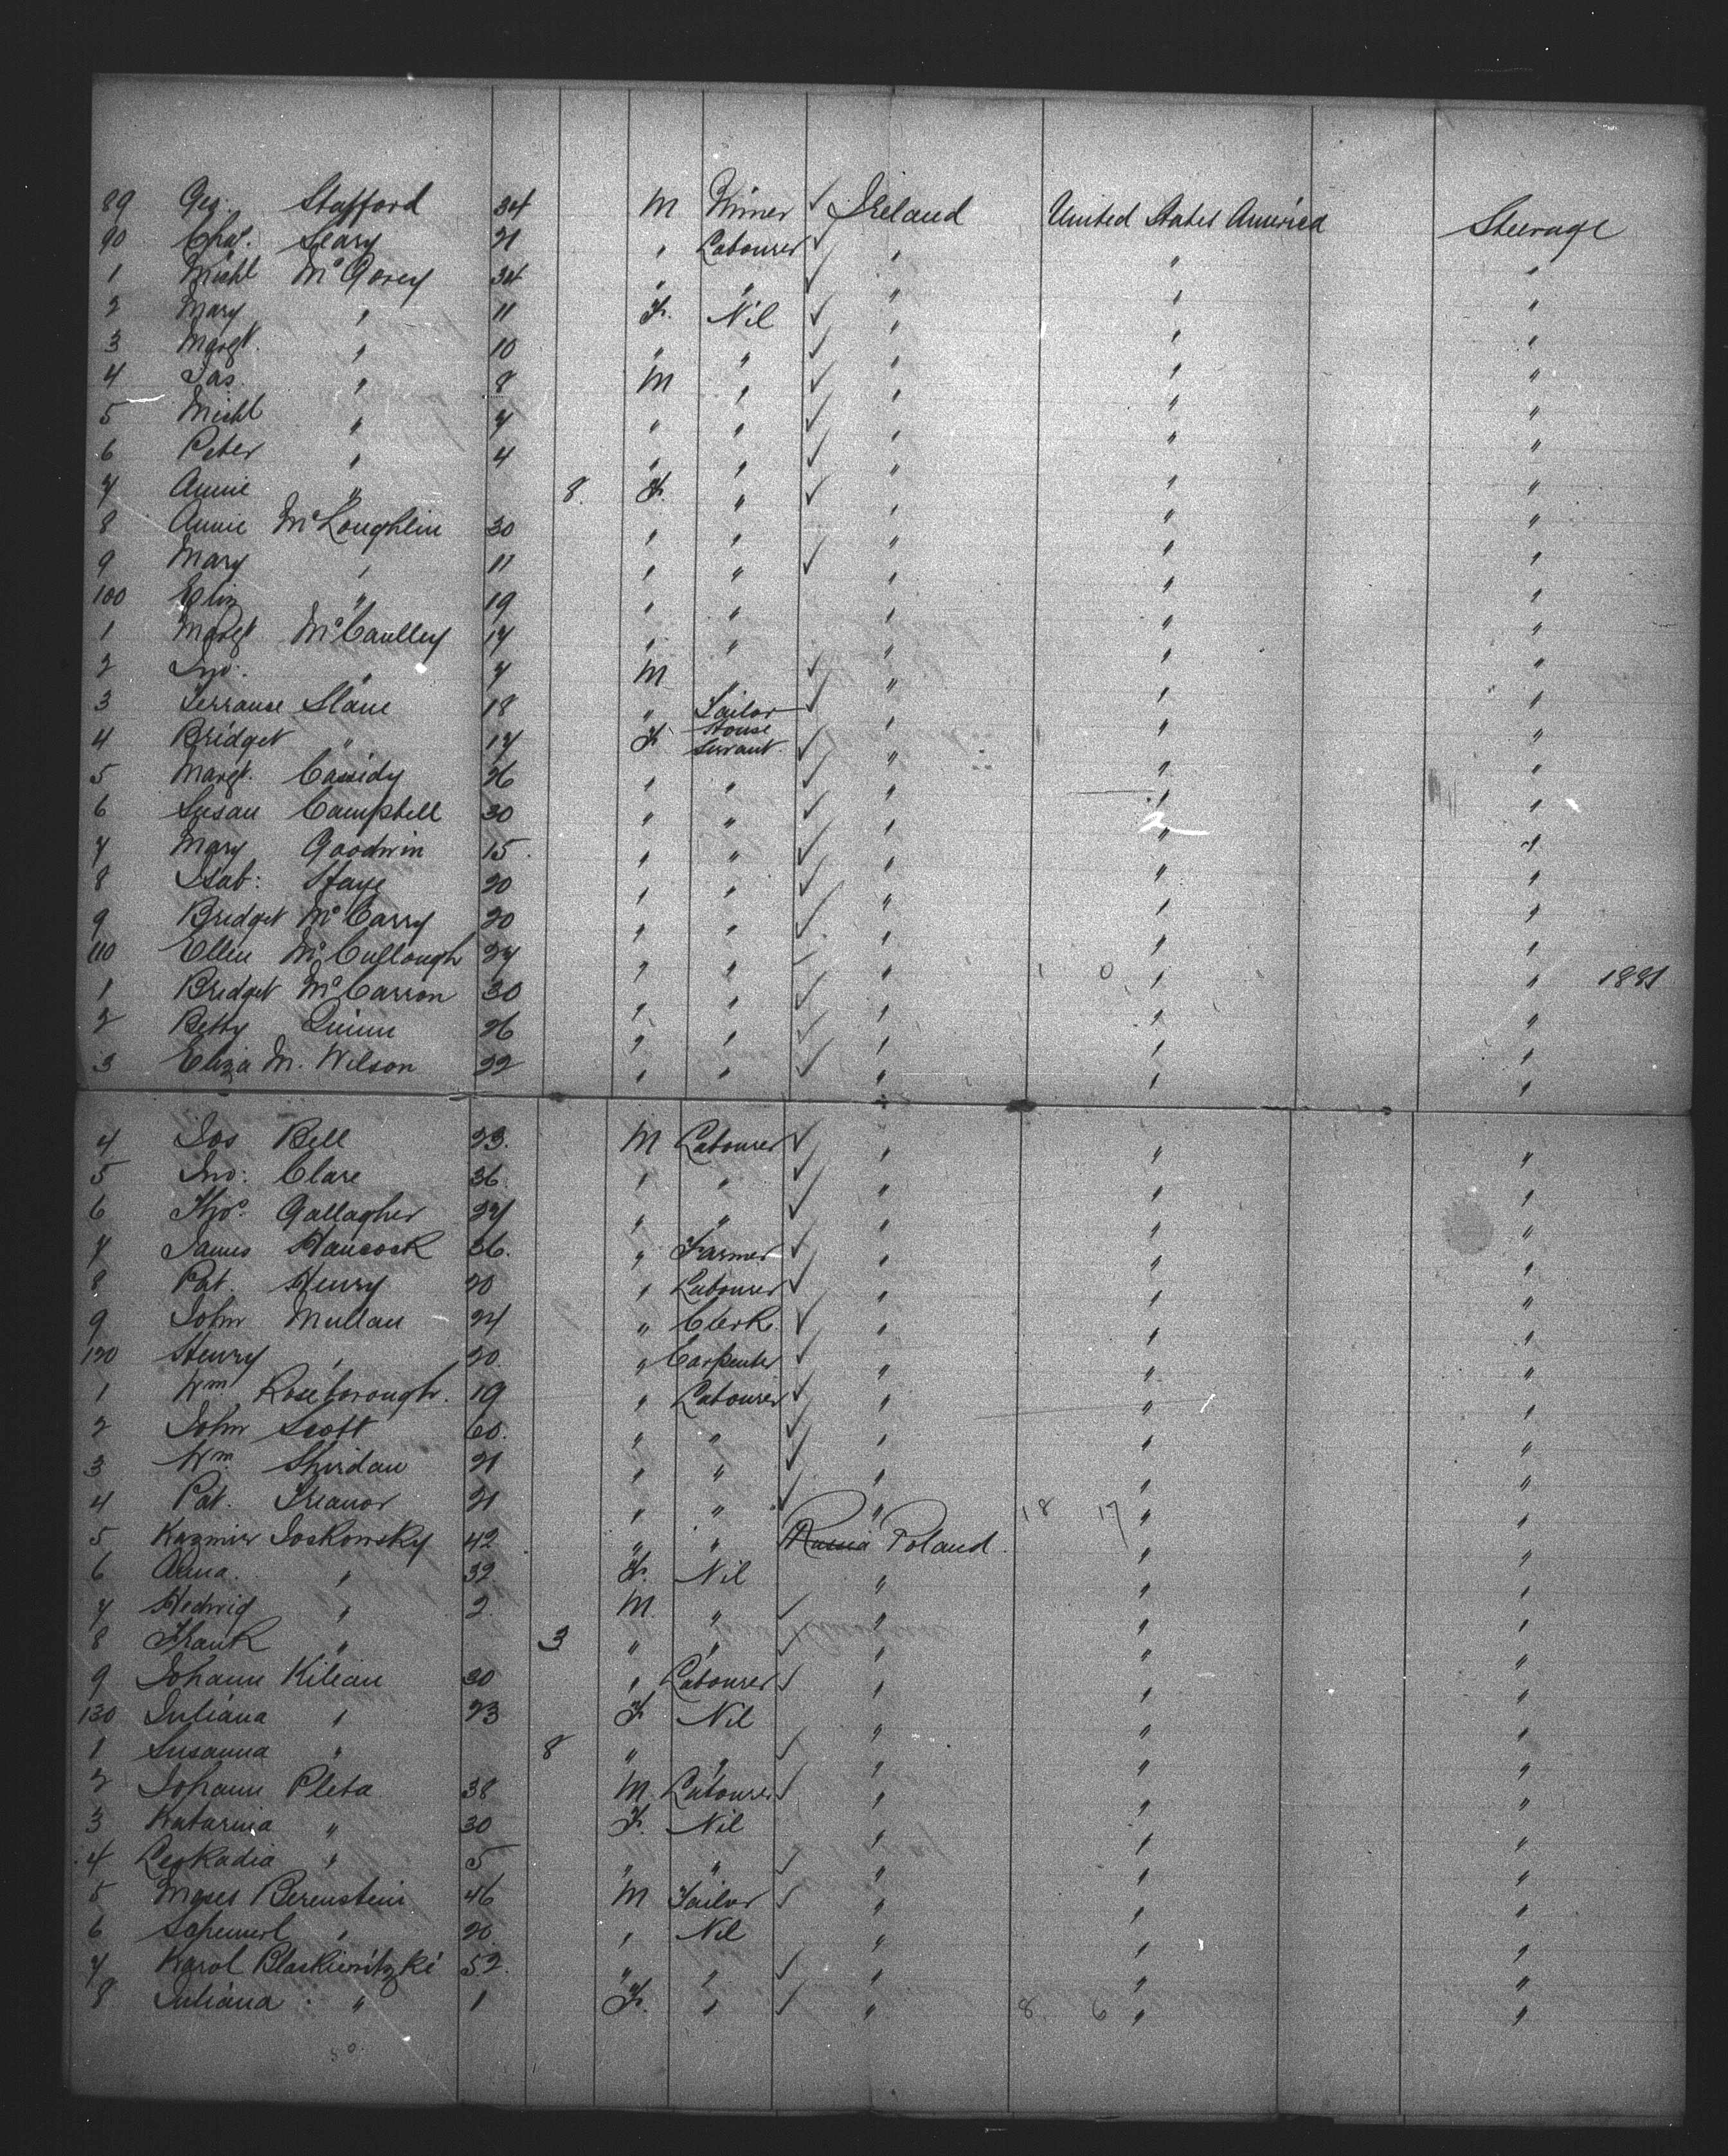 89 Geo. Stafford 34 M Miner ✓ Ireland United States America Steerage
90 Chas. Leary 21 " Labourer ✓ " " "
1 Michl McGorey 34 " " ✓ " " "
2 Mary " 11 F. Nil ✓ " " "
3 Margt. " 10 " " ✓ " " "
4 Jas. " 8 M " ✓ " " "
5 Michl " 7 " " ✓ " " "
6 Peter " 4 " " ✓ " " "
7 Annie " 8. F. " ✓ " " "
8 Annie McLoughlin 30 " " " " "
9 Mary " 11 " " ✓ " " "
100 Eliz " 19 " " " " "
1 Margt McCaulley 17 " " " " "
2 Jno. " 7 M " ✓ " " "
3 Terrance Slane 18 " Tailor ✓ " " "
4 Bridget " 17 F House Servant ✓ " " "
5 Margt. Cassidy 26 " " ✓ " " "
6 Susan Campbell 30 " " ✓ " " "
7 Mary Goodwin 15. " " ✓ " " "
8 Isab: Haye 20 " " ✓ " " "
9 Bridget McCarry 20 " " ✓ " " "
110 Ellen McCullough 27 " " ✓ " " " 1891
1 Bridget McCarron 30 " " ✓ " " "
2 Betty Quinn 26 " " ✓ " " "
3 Eliza M. Wilson 22 " " ✓ " " "
4 Jos Bell 23. M Labourer ✓ " " "
5 Jno: Clare 36. " " ✓ " " "
6 Thos. Gallagher 27 " " ✓ " " "
7 James Hancock 36. " Farmer ✓ " " "
8 Pat. Henry 20 " Labourer ✓ " " "
9 John Mullan 24 " Clerk. ✓ " " "
120 Henry " 20. " Carpenter ✓ " " "
1 Wm. Roseborough. 19 " Labourer ✓ " " "
2 John Scott 60. " " ✓ " " "
3 Wm. Shirdan 21 " " ✓ " " "
4 Pat. Treanor 21 " " ✓ " 18 17 " "
5 Kazmier Joskowsky 42 " " Russia Poland. " "
6 Anna. " 32. F. Nil " " "
7 Hedwig " 2. M. " ✓ " " "
8 Frank " 3 " " ✓ " " "
9 Johann Kilian 30 " Labourer ✓ " " "
130 Juliana " 23 F. Nil " " "
1 Susanna " 8 " " ✓ " " "
2 Johann Pleta 38 M. Labourer ✓ " " "
3 Katarina " 30 F. Nil " " "
4 Leokadia " 5 " " ✓ " " "
5 Moses Berenstein 46 M Tailor ✓ " " "
6 " 20. " Nil " " "
7 Karol Blaskiewitzki 52. " " ✓ " " "
8 Juliana " 1 F. " ✓ " 8 6 " "